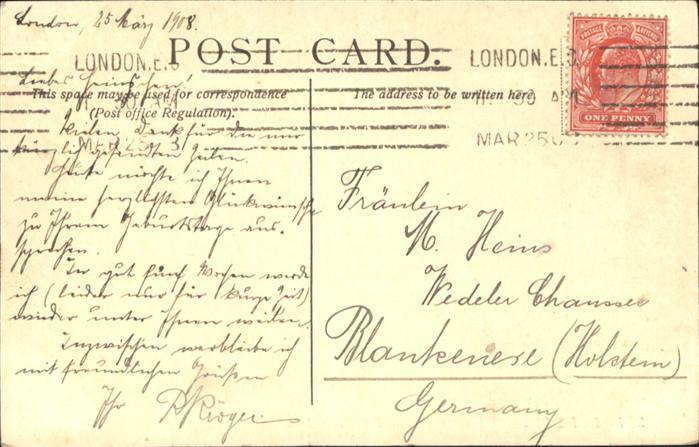 London, 25 März 1908.
POST CARD.
LONDON.E.C
LONDON.E.C.
Liebes
This space may be used for correspondence
(Post office Regulation).
The address to be written here.
11 59 AM
MAR 25 08
MAR 25 3
POSTAGE REVENUE
ONE PENNY
Vielen Dank für die mir
kürzlich gesandten Zeilen.
Heute möchte ich Ihnen
meine herzlichsten Glückwünsche
zu Ihrem Geburtstage aus-
sprechen.
In gut fünf Wochen werde
ich (leider nur für kurze Zeit)
wieder unter Ihnen weilen.
Inzwischen verbleibe ich
mit freundlichen Grüßen
Ihr
Fräulein
M. Heins
Wedeler Chaussee
Blankenese (Holstein)
Germany